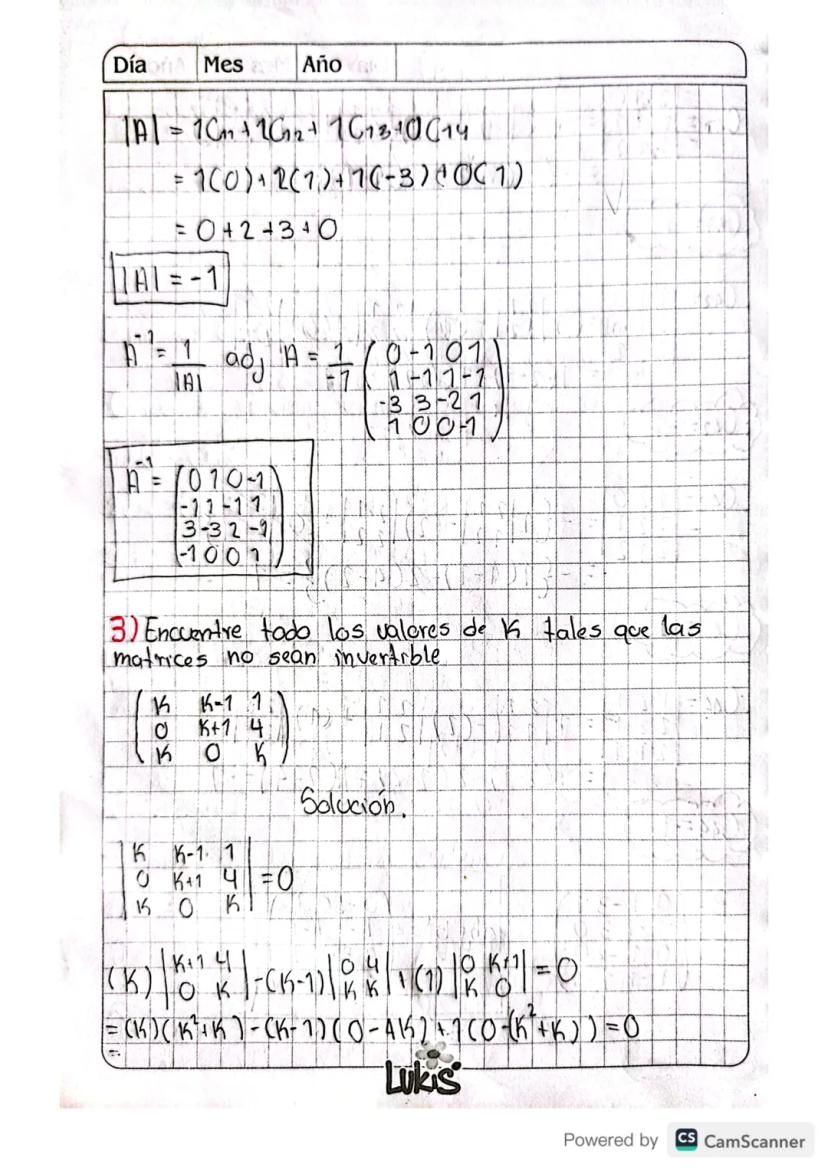 Día Mes Año
|A| = 1C₁₁ + 2C₁₂ + 1C₁₃ + 0C₁₄
= 1(0) + 2(1) + 1(-3) + 0(1)
= 0 + 2 + 3 + 0
|A| = -1
A⁻¹ = 1/|A| adj A = 1/-1 ( 0 -1 0 1
1 -1 1 -1
-3 3 -2 1
1 0 0 -1 )
A⁻¹ = ( 0 1 0 -1
-1 1 -1 1
3 -3 2 -1
-1 0 0 1 )
3) Encuentre todo los valores de K tales que las
matrices no sean invertible
( K K-1 1
0 K+1 4
K 0 K )
Solución.
| K K-1 1
0 K+1 4 | = 0
K 0 K |
(K) | K+1 4 ; 0 K | - (K-1) | 0 4 ; K K | + (1) | 0 K+1 ; K 0 | = 0
= (K)(K²+K) - (K-1)(0 - 4K) + 1(0-(K²+K)) = 0
=
LUKIS
Powered by CS CamScanner